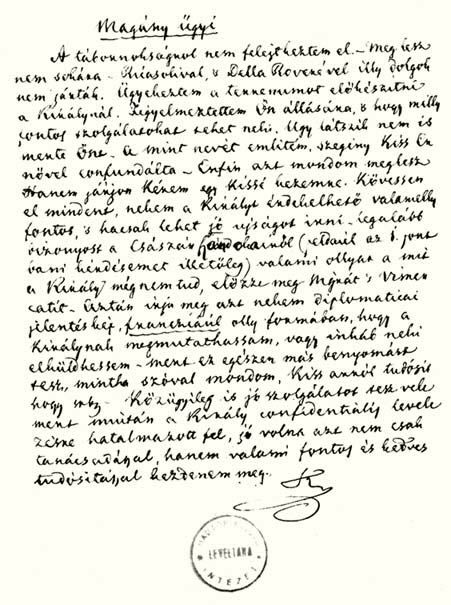 Magány ügyi
A tábornokságnol nem felejtheztem el. – Meg lesz
nem sokára – Chiasolival, s Della Roverével illy dolgok
nem jártak. Ügyekeztem a terrenumot előkészitni
a Királynál. Figyelmeztettem Ön állására, s hogy milly
fontos szolgálatokat tehet neki. Ugy látszik nem is-
merte Önt. A mint nevét emlitém, szegény Kiss Er-
növel confundálta – Enfin azt mondom meglesz
Hanem járjon Kérem egy Kissé kezemre. Kövessen
el mindent, nekem a Királyt érdekelhető valamelly
fontos, s hacsak lehet jó ujságot irni – legalább
bizonyost a Császár szándokairól (például az 1. pont
bani kérdésemet illetőleg) valami ollyat a mit
a Király még nem tud, előzze meg Nigrát s Vimer
catit – Aztán irja meg azt nekem diplomaticai
jelentéskép, francziáúl olly formában, hogy a
Királynak megmutathassam, vagy inkább neki
elküldhessem – mert ez egészen más benyomást
tesz, mintha szóval mondom, Kiss arról tudósit
hogy – Közügyileg is jó szolgálatot tesz vele
mert miután a Király confidentiális levele-
zésre hatalmazott fel, jó volna azt nem csak
tanácsadással, hanem valami fontos és kedves
tudósitással kezdenem meg.
LEVÉLTÁRA
INTÉZET